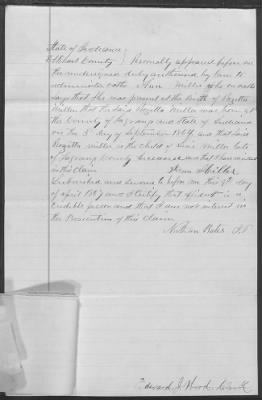 State of Indiana
Elkhart County } Personally appeared before me
the undersigned duly authorized by law to
administer oaths Ann Miller who on oath
says that she was present at the Birth of Rozetta
Miller that the said Rozetta Miller was born at
the County of Lagrange and State of Indiana
on the 3 day of September 1864 and that said
Rozetta Miller is the child of Levi Miller late
of Lagrange County deceased and that I am not interested
in this claim Ann Miller
Subscribed and sworn to before me this 9th day
of April and I certify that affiant is a
credible person and that I am not interest in
the Prosecution of this Claim
Nathan Bates J.P.
Edward J. Wood Clerk